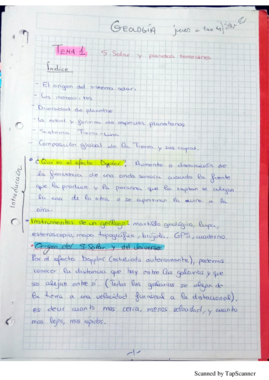 GEOLOGÍA
TEMA 1: S. Solar y planetas terrestres
Índice
- El origen del sistema solar.
- Los meteoritos
- Diversidad de planetas
- La edad y
- Sistema Tierra-Luna
- Composición global de la Tierra y sus capas.
Introducción
- ¿Qué es el efecto Doppler? Aumento o disminución de
la frecuencia de una onda sonora cuando la fuente
que la produce y la persona que la capta se alejan
una de la otra o se aproxima la una a la
otra.
- Instrumentos de un geólogo: martillo geológico, lupa,
estereoscopio, mapa topográfico, brújula, GPS, cuaderno.
- Origen del S. Solar y del universo
Por el efecto Doppler (estudiado anteriormente), podemos
conocer la distancia que hay entre las galaxias y que
se alejan entre sí. (Todas las galaxias se alejan de
la tierra a una velocidad proporcional a la distancia),
es decir cuanto más cerca, menos velocidad, y cuanto
más lejos, más rápido.
-1-
Scanned by TapScanner